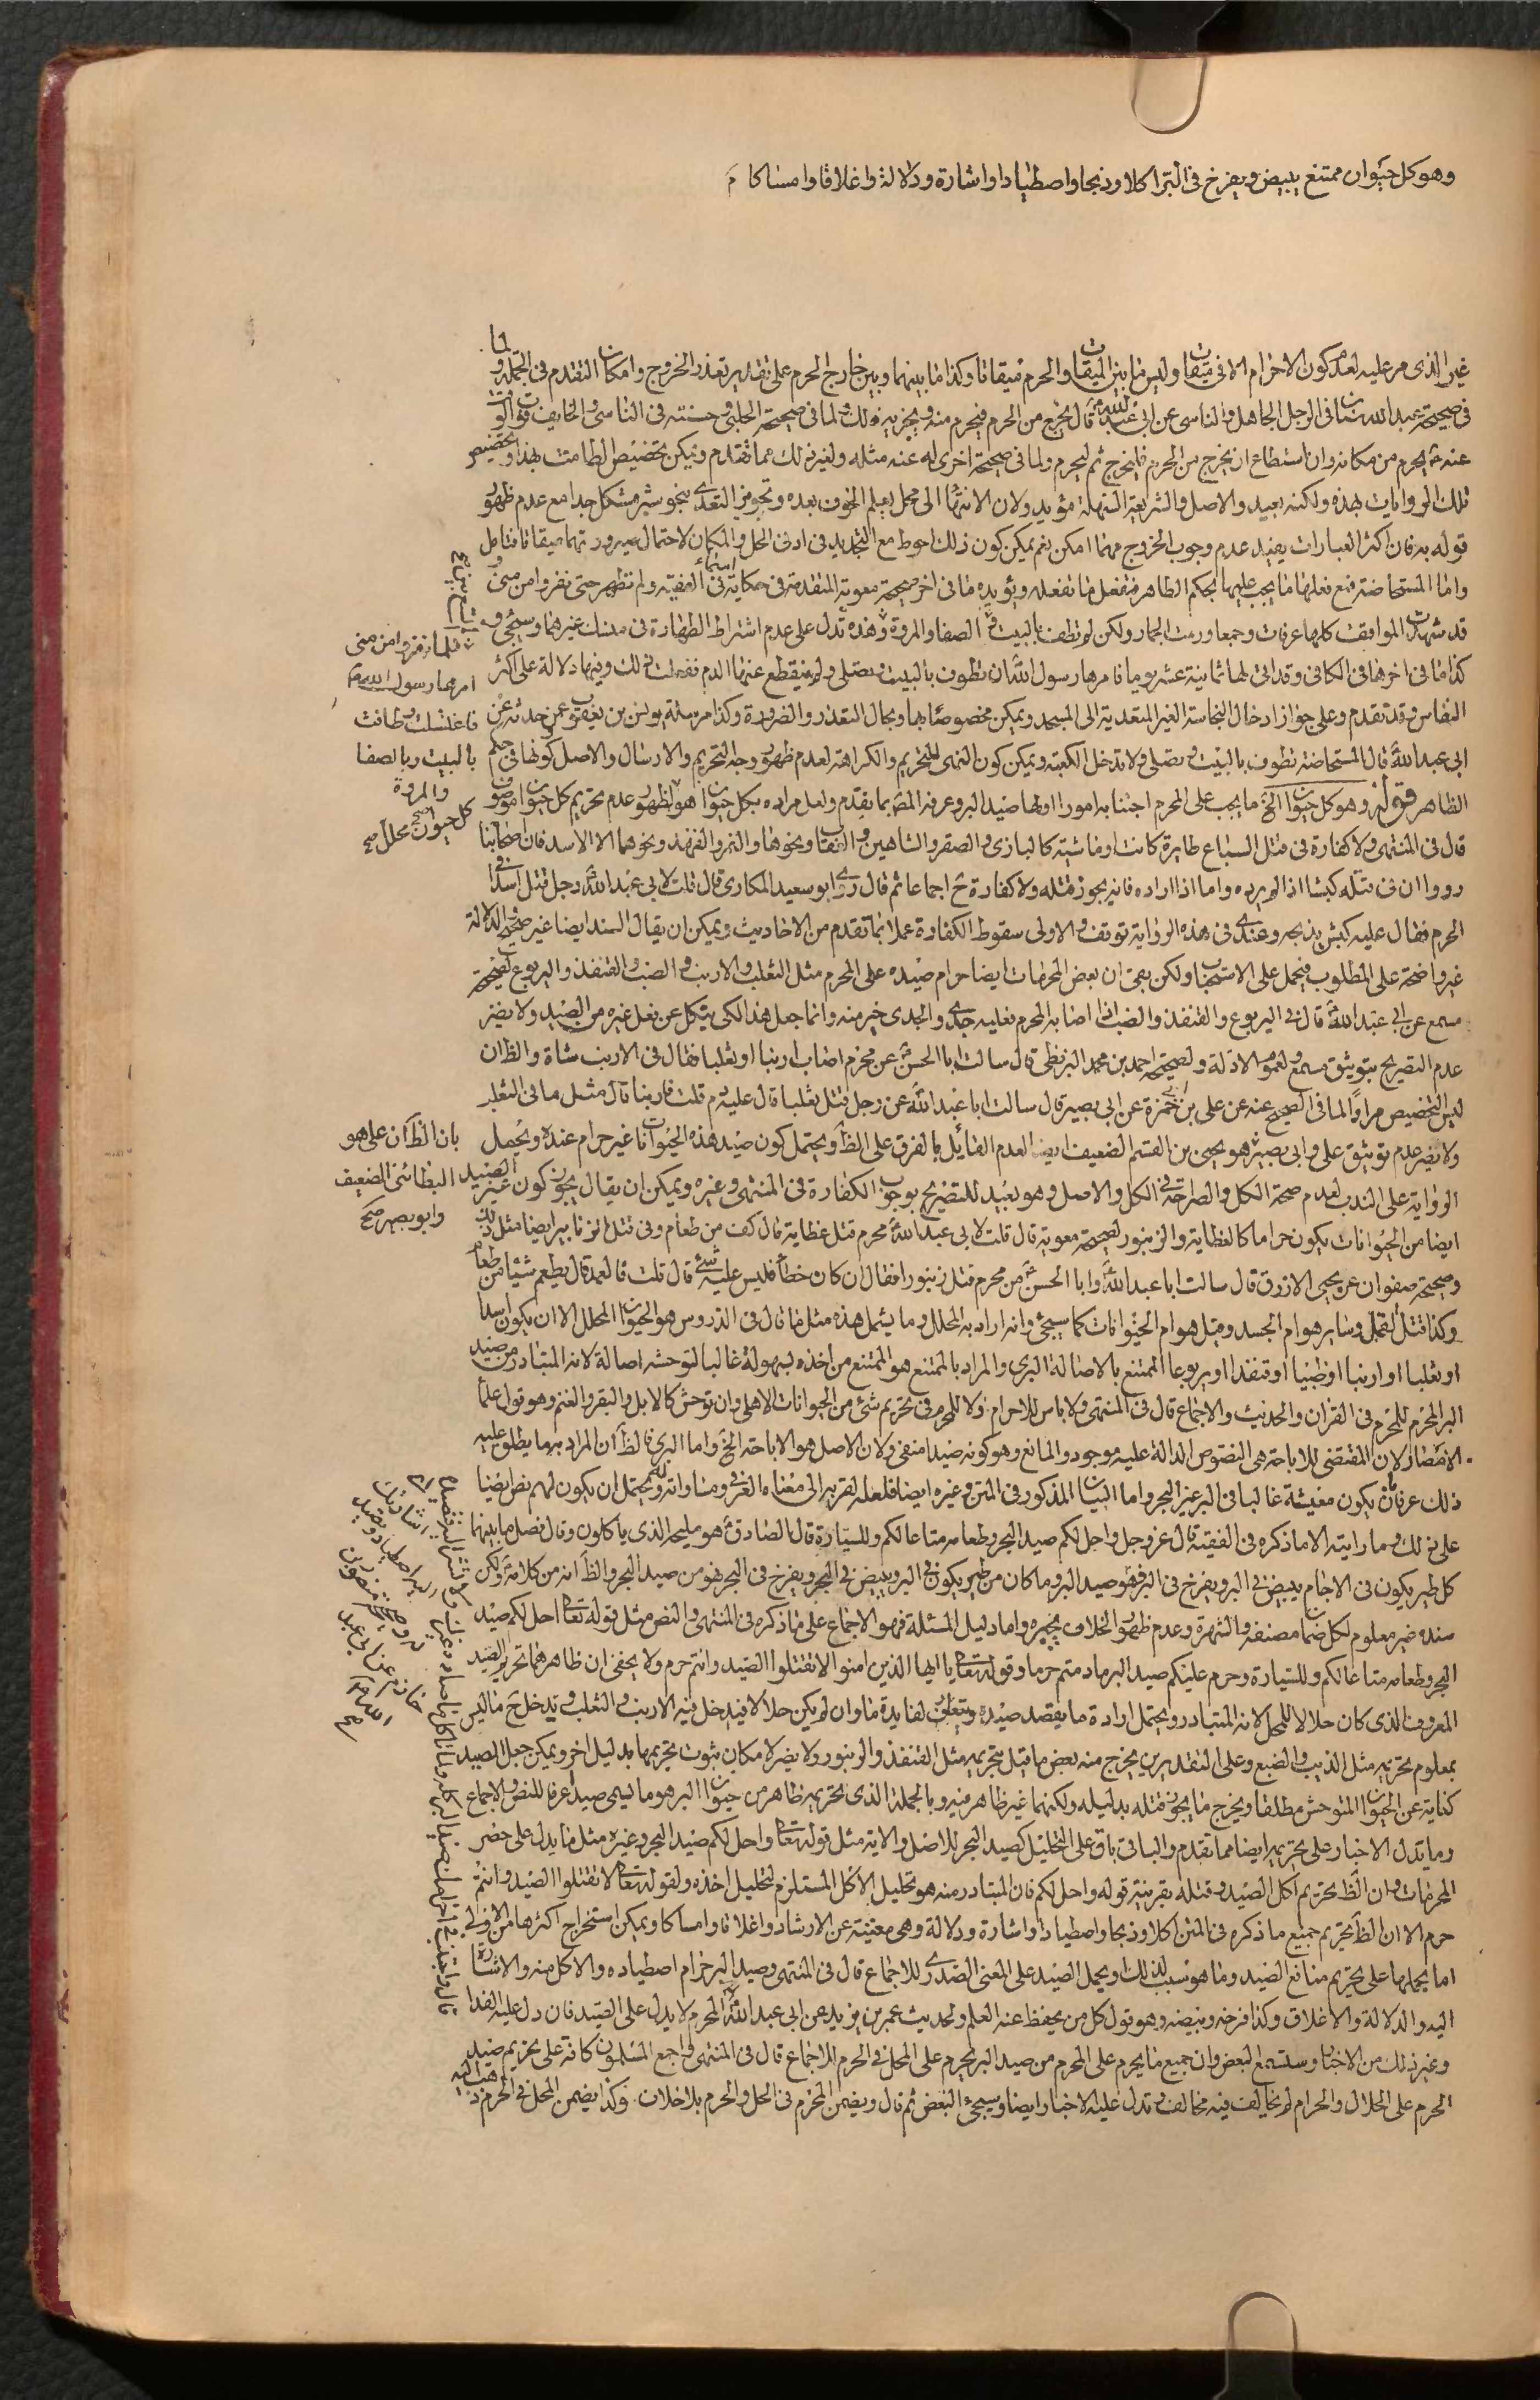 وهو كل حيوان ممتنع يبيض ويفرخ في البر اكلا وذبحا واصطيادا واشارة ودلالة واغلاقا وامساكا م
غير الذي مر عليه لعدم كون الاحرام الا في ميقات وليس ما بين الميقات والحرم ميقاتا وكذا ما بينهما وبين خارج الحرم على تقدير تعذر الخروج وامكان التقدم في الجملة ولما
في صحيحة عبد الله بن سنان في الرجل الجاهل والناسي عن ابي عبد الله قال يخرج من الحرم فيحرم منه ويجزيه ذلك ولما في صحيحة الحلبي وحسنته في الناسي والخايف فوت الوقت
عنه يحرم من مكانه وان استطاع ان يخرج من الحرم فليخرج ثم ليحرم ولما في صحيحة اخرى له عنه مثله ولغير ذلك مما تقدم ويمكن تخصيص الطامث بهذا وتخصيص
تلك الروايات بهذه ولكنه بعيد والاصل والشريعة السهلة مؤيد ولان الانتهاء الى محل يعلم الخوف بعده وتجويز التعدي بنحو شبر مشكل جدا مع عدم ظهور
قوله به فان اكثر العبارات يفيد عدم وجوب الخروج مهما امكن نعم يمكن كون ذلك احوط مع التجديد في ادنى الحل والمكان لاحتمال صيرورتهما ميقاتا فتامل
واما المستحاضة فمع فعلها ما يجب عليها بحكم الطاهر فتفعل ما تفعله ويؤيده ما في اخر صحيحة معوية المتقدمة في حكاية اسماء في الفقيه ولم تطهر حتى نفروا من منى و
قد شهدت المواقف كلها عرفات وجمعا ورمت الجمار ولكن لم تطف بالبيت ولا الصفا والمروة وهذه تدل على عدم اشتراط الطهارة في مناسك غيرهما وسيجئ و
كذا ما في اخرها في الكافي وقد اتى لها ثمانية عشر يوما فامرها رسول الله ان تطوف بالبيت وتصلي ولم ينقطع عنها الدم ففعلت ذلك وفيها دلالة على اكثر
النفاس وقد تقدم وعلى جواز ادخال النجاسة الغير المتعدية الى المسجد ويمكن مخصوصا بها وبحال التعذر والضرورة وكذا مرسلة يونس بن يعقوب عمن حدثه عن
ابي عبد الله قال المستحاضة تطوف بالبيت وتصلي ولا تدخل الكعبة ويمكن كون النهي للتحريم والكراهة لعدم ظهور وجه التحريم والارسال والاصل كونها في حكم
الظاهر قوله وهو كل حيوان الخ ما يجب على المحرم اجتنابه امور اولها صيد البر وعرفه المص بما تقدم ولعل مراده بكل حيوان هو لظهور عدم تحريم كل حيوان موصوف
قال في المنتهى ولا كفارة في قتل السباع طايرة كانت او ماشية كالبازي والصقر والشاهين والعقاب ونحوها والنمر والفهد ونحوهما الا الاسد فان اصحابنا
رووا ان في قتله كبشا اذا لم يرده واما اذا اراده فانه يجوز قتله ولا كفارة ح اجماعا ثم قال روى ابو سعيد المكاري قال قلت لابي عبد الله رجل قتل اسدا في
الحرم فقال عليه كبش يذبحه وعندي في هذه الرواية توقف والاولى سقوط الكفارة عملا بما تقدم من الاحاديث ويمكن ان يقال السند ايضا غير صحيح والدلالة
غير واضحة على المطلوب فيحمل على الاستحباب ولكن بقي ان بعض المحرمات ايضا حرام صيده على المحرم مثل الثعلب والارنب والضب والقنفذ واليربوع لصحيحة
مسمع عن ابي عبد الله قال في اليربوع والقنفذ والضب اذا اصابه المحرم فعليه جدي والجدي خير منه وانما جعل هذا لكي ينكل عن فعل غيره من الصيد ولا يضر
عدم التصريح بتوثيق مسمع ولعموم الادلة ولصحيحة احمد بن محمد البزنطي قال سالت ابا الحسن عن محرم اصاب ارنبا او ثعلبا فقال في الارنب شاة والظ ان
ليس التخصيص مرادا لما في الصحيح عنه عن علي بن ابي حمزة عن ابي بصير قال سالت ابا عبد الله عن رجل قتل ثعلبا قال عليه دم قلت فارنبا قال مثل ما في الثعلب
ولا يضر عدم توثيق علي وابي بصير هو يحيى بن القسم الضعيف ايضا لعدم القائل بالفرق على الظ ويحتمل كون صيد هذه الحيوانات غير حرام عنده ويحمل
الرواية على الندب لعدم صحة الكل والصراحة في الكل والاصل وهو بعيد للتصريح بوجوب الكفارة في المنتهى وغيره ويمكن ان يقال يجوز كون غير الصيد
ايضا من الحيوانات يكون حراما كالعظاية والزنبور لصحيحة معوية قال قلت لابي عبد الله محرم قتل عظاية قال كف من طعام وفي قتل الزنابير ايضا مثل ذلك
وصحيحة صفوان عن يحيى الازرق قال سالت ابا عبد الله وابا الحسن من محرم قتل زنبورا فقال ان كان خطأ فليس عليه شئ قال قلت فالعمد قال يطعم شيئا من طعام
وكذا قتل القمل وساير هوام الجسد وقيل هوام الحيوانات كما سيجئ وانه اراد به المحلل وما يشمل هذه مثل ما قال في الدروس هو الحيوان المحلل الا ان يكون اسدا
او ثعلبا او ارنبا او ضبا او قنفذا او يربوعا الممتنع بالاصالة البري والمراد بالممتنع هو الممتنع من اخذه بسهولة غالبا لتوحشه اصالة لانه المتبادر من صيد
البر المحرم للمحرم في القران والحديث والاجماع قال في المنتهى ولا باس للاحرام ولا للحرم في تحريم شئ من الحيوانات الاهلي وان توحش كالابل والبقر والغنم وهو قول علماء
الامصار لان المقتضي للاباحة هي النصوص الدالة عليه موجود والمانع وهو كونه صيدا منفي ولان الاصل هو الاباحة الخ واما البري فالظ ان المراد به ما يطلق عليه
ذلك عرفا بان يكون معيشة غالبا في البر غير البحر واما البيان المذكور في المتن وغيره ايضا فلعله لقربه الى معناه العرفي ومساواته له ويحتمل ان يكون لهم نص ايضا
على ذلك وما رايته الا ما ذكره في الفقيه قال عز وجل واحل لكم صيد البحر وطعامه متاعا لكم وللسيارة قال الصادق هو مليحه الذي ياكلون وقال فصل ما بينهما
كل طير يكون في الاجام يبيض في البر ويفرخ في البر فهو صيد البر وما كان من طير يكون في البر ويبيض في البحر ويفرخ في البحر فهو من صيد البحر والظ انه من كلامه ولكن
سنده غير معلوم لكل ضمان مصنفه والشهرة وعدم ظهور الخلاف يجبره واما دليل المسئلة فهو الاجماع على ما ذكره في المنتهى والنص مثل قوله تعالى احل لكم صيد
البحر وطعامه متاعا لكم وللسيارة وحرم عليكم صيد البر ما دمتم حرما وقوله تعالى يا ايها الذين امنوا لا تقتلوا الصيد وانتم حرم ولا يخفى ان ظاهرهما تحريم الصيد
المعروف الذي كان حلالا للمحل لانه المتبادر ويحتمل ارادة ما يقصد صيده ويتعلق لفايدة ما وان لم يكن حلالا فيدخل فيه الارنب والثعلب وقد يدخل ح ما ليس
بمعلوم تحريمه مثل الذئب والضبع وعلى التقديرين يخرج منه بعض ما قيل بتحريمه مثل القنفذ والزنبور ولا يضر لامكان ثبوت تحريمها بدليل اخر ويمكن جعل الصيد
كناية عن الحيوان المتوحش مطلقا ويخرج ما يجوز قتله بدليله ولكنها غير ظاهر فيه وبالجملة الذي تحريمه ظاهر من حيوان البر هو ما يسمى صيدا عرفا للنص والاجماع
وما يدل الاخبار على تحريمه ايضا مما تقدم والباقي باق على التحليل كصيد البحر للاصل والاية مثل قوله تعالى واحل لكم صيد البحر وغيره مثل ما يدل على حصر
المحرمات وان الظ تحريم اكل الصيد وقتله بقرينة قوله واحل لكم فان المتبادر منه هو تحليل الاكل المستلزم لتحليل اخذه ولقوله تعالى لا تقتلوا الصيد وانتم
حرم الا ان الظ تحريم جميع ما ذكره في المتن اكلا وذبحا واصطيادا واشارة ودلالة وهي مغنية عن الارشاد واغلاقا وامساكا ويمكن استخراج اكثرها من الاولى
اما يحملها على تحريم منافع الصيد وما هو سبب لذلك ويحمل الصيد على المعنى المصدري للاجماع قال في المنتهى وصيد البر حرام اصطياده والاكل منه والاشارة
اليه والدلالة والاغلاق وكذا فرخه وبيضه وهو قول كل من يحفظ عنه العلم ولحديث عمر بن يزيد عن ابي عبد الله المحرم لا يدل على الصيد فان دل عليه الفدا
وغير ذلك من الاخبار وستسمع البعض وان جميع ما يحرم على المحرم من صيد البر يحرم على المحل في الحرم للاجماع قال في المنتهى واجمع المسلمون كافة على تحريم صيد
الحرم على الحلال والحرام لم يخالف فيه مخالف وتدل عليه الاخبار ايضا وسيجئ البعض ثم قال ويضمن المحرم في الحل والحرم بلا خلاف وكذا يضمن المحل في الحرم ذهب اليه
فلما نفروا من منى
امرها رسول الله
فاغتسلت وطافت
بالبيت وبالصفا
والمروة
كل حيوان محلل صح
بان الظ ان علي هو
البطائني الضعيف
وابو بصير صح